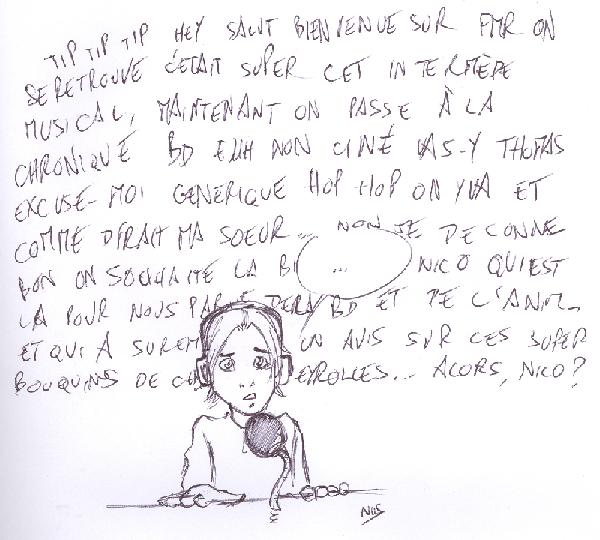 TIP TIP TIP HEY SALUT BIENVENUE SUR FMR ON
SE RETROUVE C'ETAIT SUPER CET INTERMÈDE
MUSICAL, MAINTENANT ON PASSE À LA
CHRONIQUE BD EUH NON CINÉ VAS-Y THOMAS
EXCUSE-MOI GENERIQUE HOP HOP ON Y VA ET
COMME DIRAIT MA SOEUR... NON JE DECONNE
BON ON SOUHAITE LA BI NICO QUI EST
...
LÀ POUR NOUS PARL DE LA BD ET DE L'ANIM_
ET QUI A SUREM UN AVIS SUR CES SUPER
BOUQUINS DE EYROLLES... ALORS, NICO?
NIIS